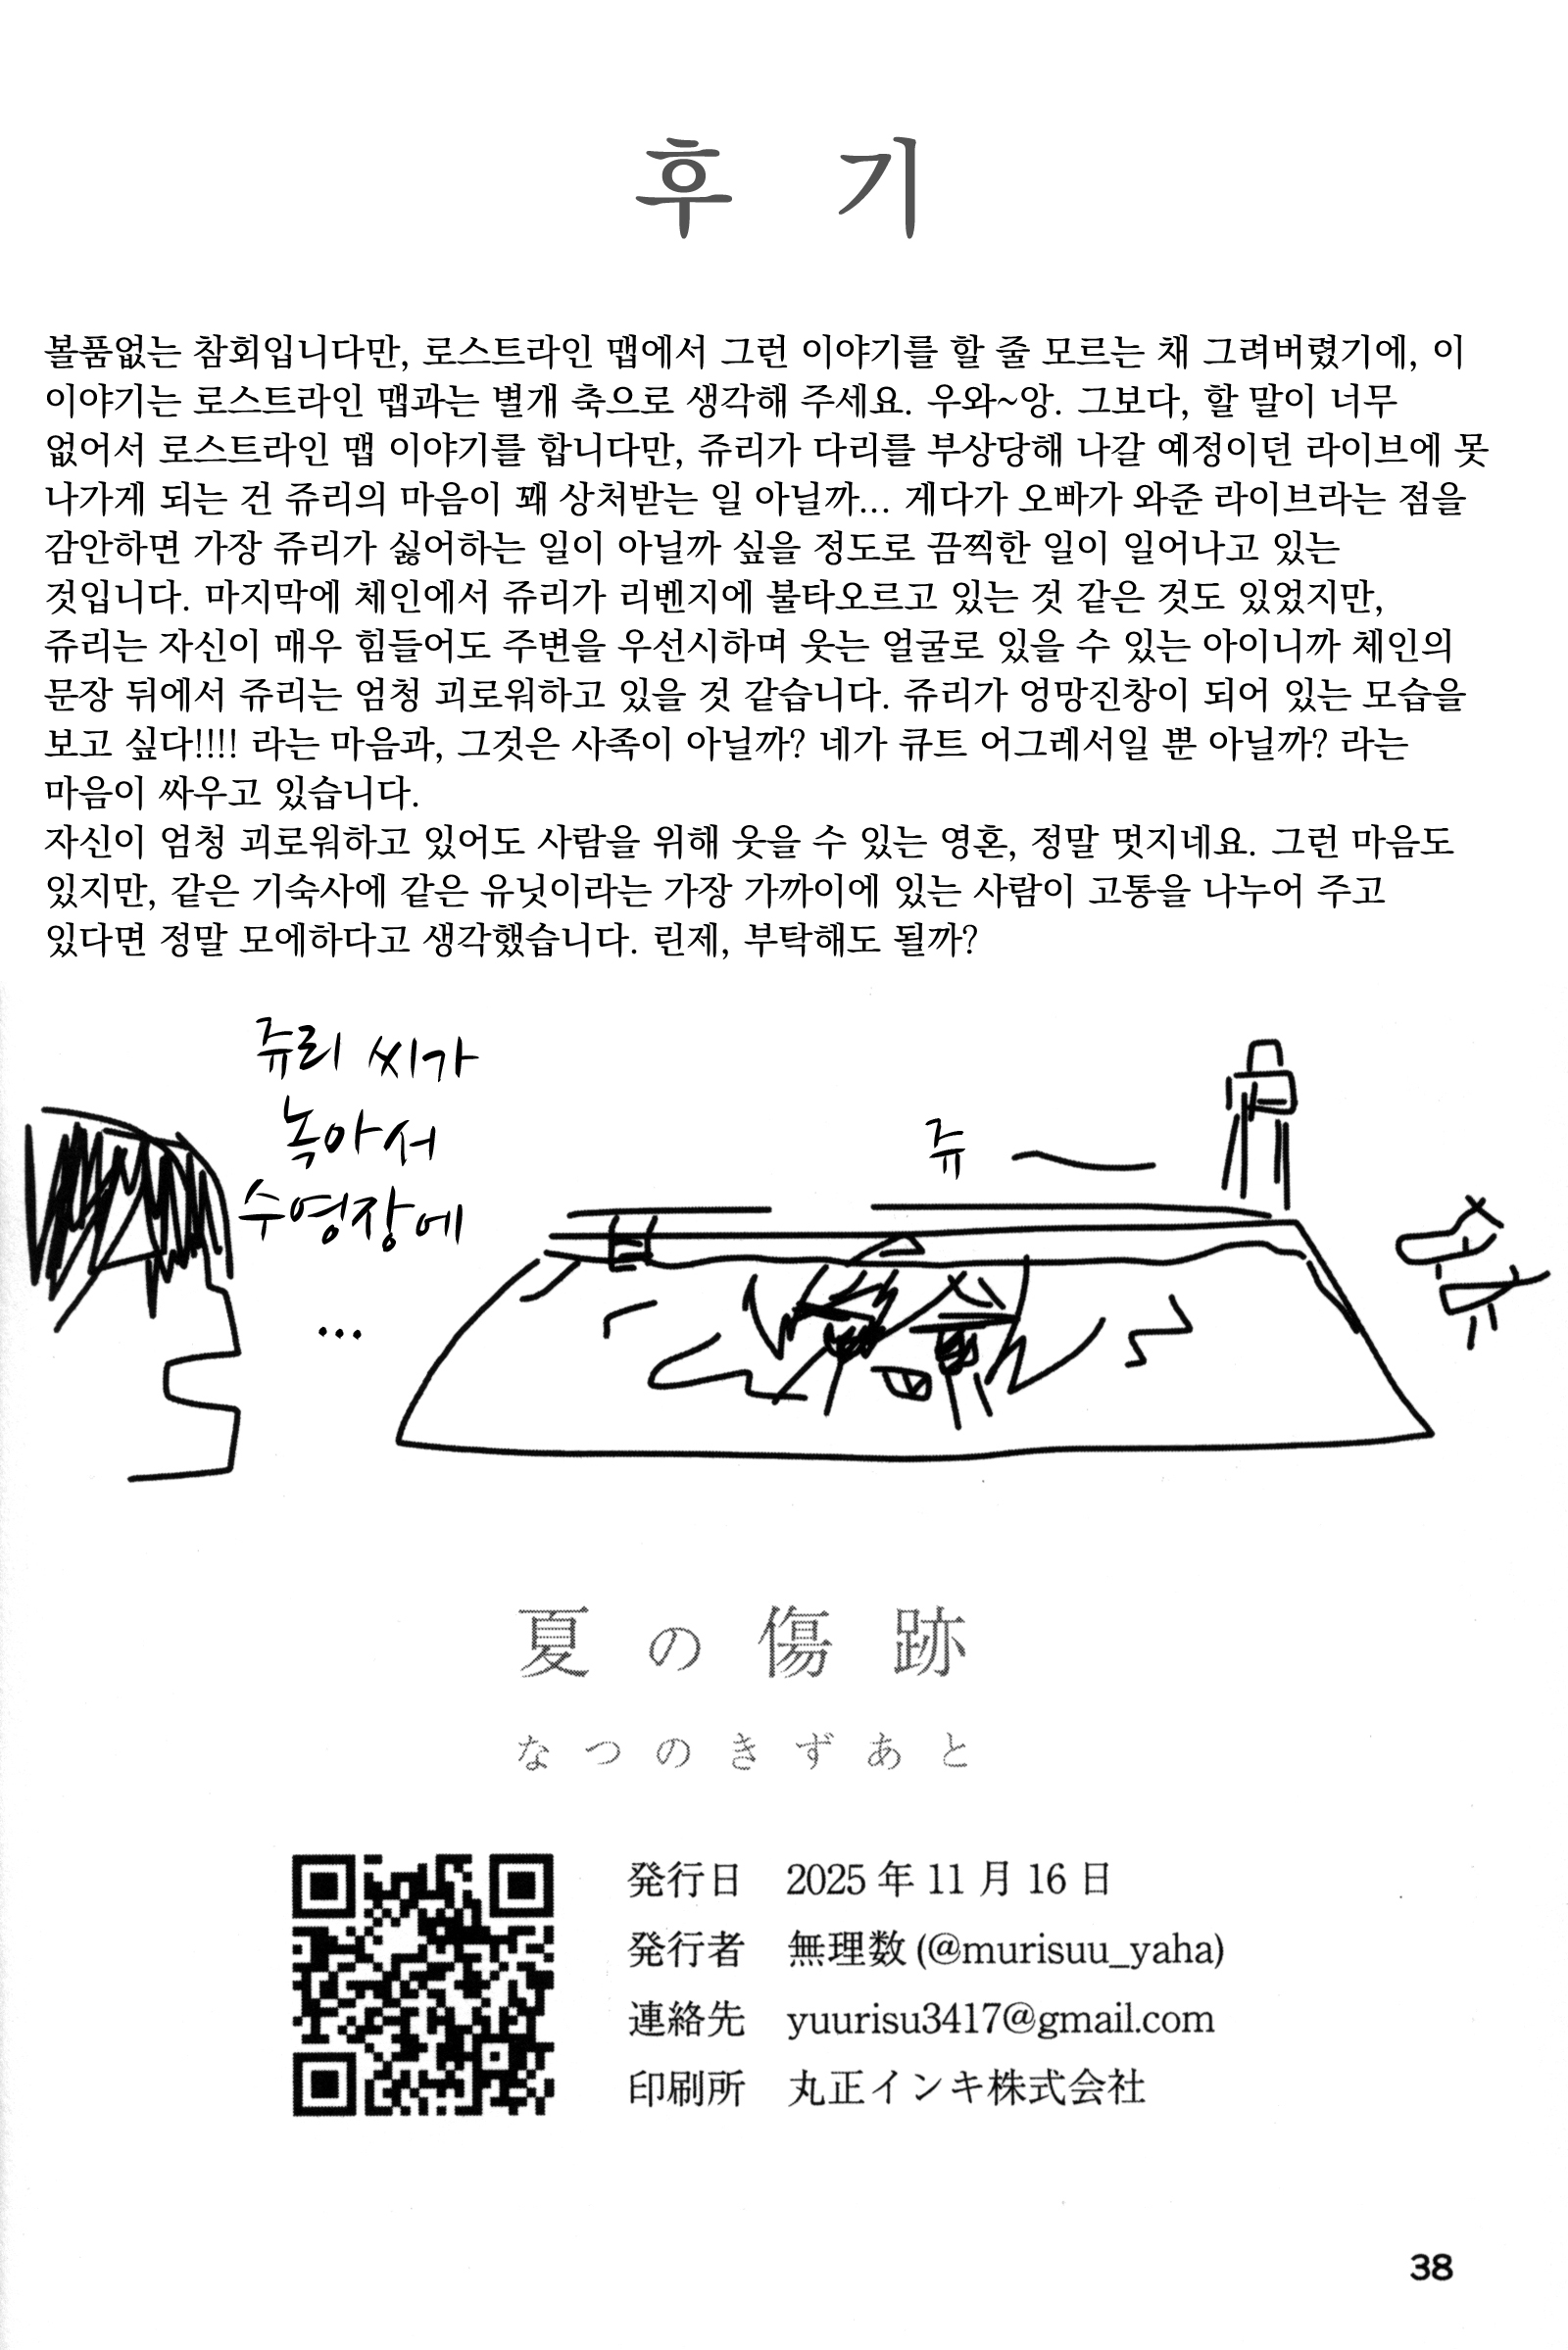 후 기
볼품없는 참회입니다만, 로스트라인 맵에서 그런 이야기를 할 줄 모르는 채 그려버렸기에, 이
이야기는 로스트라인 맵과는 별개 축으로 생각해 주세요. 우와~앙. 그보다, 할 말이 너무
없어서 로스트라인 맵 이야기를 합니다만, 쥬리가 다리를 부상당해 나갈 예정이던 라이브에 못
나가게 되는 건 쥬리의 마음이 꽤 상처받는 일 아닐까... 게다가 오빠가 와준 라이브라는 점을
감안하면 가장 쥬리가 싫어하는 일이 아닐까 싶을 정도로 끔찍한 일이 일어나고 있는
것입니다. 마지막에 체인에서 쥬리가 리벤지에 불타오르고 있는 것 같은 것도 있었지만,
쥬리는 자신이 매우 힘들어도 주변을 우선시하며 웃는 얼굴로 있을 수 있는 아이니까 체인의
문장 뒤에서 쥬리는 엄청 괴로워하고 있을 것 같습니다. 쥬리가 엉망진창이 되어 있는 모습을
보고 싶다!!!! 라는 마음과, 그것은 사족이 아닐까? 네가 큐트 어그레서일 뿐 아닐까? 라는
마음이 싸우고 있습니다.
자신이 엄청 괴로워하고 있어도 사람을 위해 웃을 수 있는 영혼, 정말 멋지네요. 그런 마음도
있지만, 같은 기숙사에 같은 유닛이라는 가장 가까이에 있는 사람이 고통을 나누어 주고
있다면 정말 모에하다고 생각했습니다. 린제, 부탁해도 될까?
쥬리 씨가
녹아서
수영장에
...
쥬~
夏の傷跡
なつのきずあと
発行日 2025年11月16日
発行者 無理数(@murisuu_yaha)
連絡先 yuurisu3417@gmail.com
印刷所 丸正インキ株式会社
38